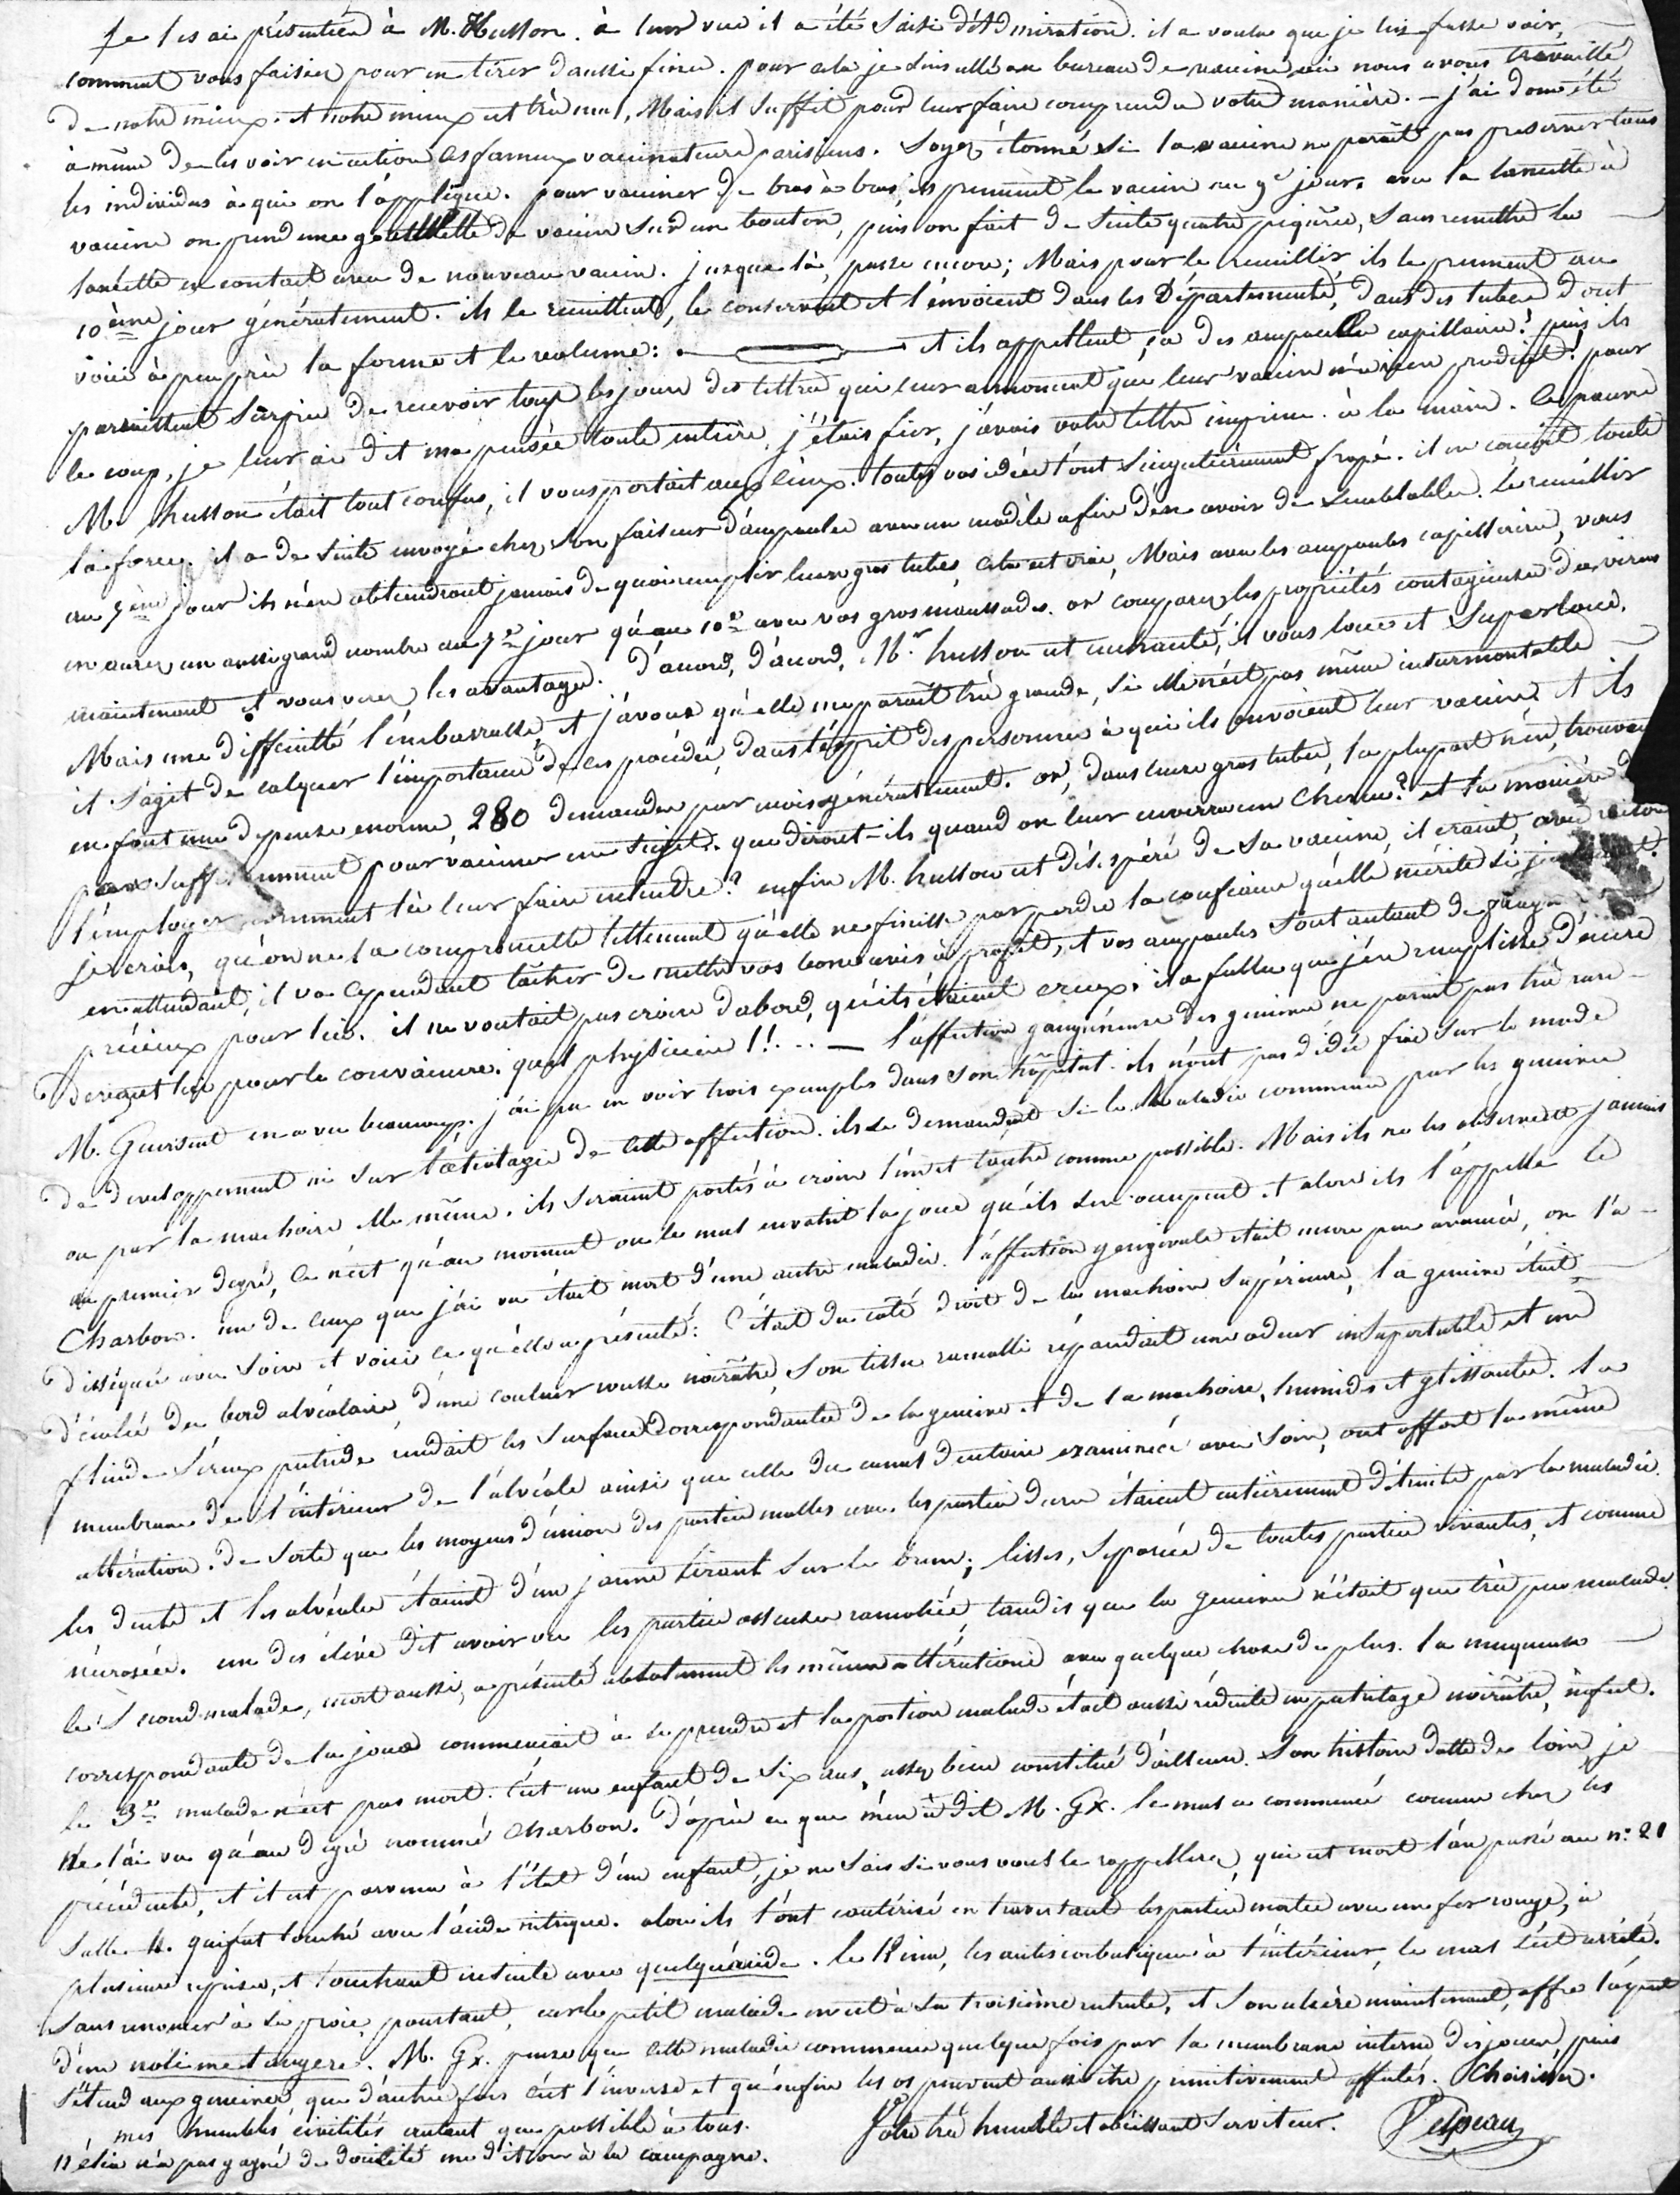 Je les ai présentées à M. Husson. à leur vue il a été saisi d'Admiration. il a voulu que je lui fasse voir,
comment vous faisiez pour en tirer d'aussi fines. pour cela je suis allé au bureau de vaccine où nous avons travaillé
de notre mieux. et notre mieux est très mal, Mais il suffit pour leur faire comprendre votre manière. — j'ai donc été
à même de les voir en action ces fameux vaccinateurs parisiens. Soyez étonné si la vaccine ne paraît pas preserver tous
les individus à qui on l'applique. pour vacciner de bras à bras, ils prennent le vaccin au 9e jour. avec la lancette à
vaccine on prend une gouttelette de vaccin sur un bouton, puis on fait de suite quatre piqûres, sans remettre la
lancette en contact avec de nouveau vaccin. jusque là, passe encore; Mais pour le recueillir ils le prennent au
10ème jour généralement. ils le recueillent, le conservent et l'envoient dans les Départements, dans des tubes dont
voici à peu près la forme et le volume: et ils appellent ça des ampoules capillaires! puis ils
paraissent surpris de recevoir tous les jours des lettres qui leur annoncent que leur vaccin n'a rien produit! pour
le coup, je leur ai dit ma pensée toute entière, j'étais fier, j'avais votre lettre imprimée à la main. Ce pauvre
M. husson était tout confus, il vous portait aux cieux. toutes vos idées l'ont singulièrement frapé. il en conçoit toute
la force. il a de suite envoyé chez son faiseur d'ampoules avec un modèle afin d'en avoir de semblables. le recueillir
au 7ème jour ils n'en obtiendront jamais de quoi remplir leurs gros tubes, cela est vrai, Mais avec les ampoules capillaires, vous
en aurez un aussi grand nombre au 7e jour qu'au 10e avec vos gros maussades. or comparez les propriétés contagieuses du virus
maintenant et vous verrez les avantages. D'accord, d'accord, Mr. husson est enchanté, il vous loue et Superloue.
Mais une difficulté l'embarrasse et j'avoue qu'elle me paraît très grande, si elle n'est pas même insurmontable
il s'agit de calquer l'importance de ces procédés, dans l'esprit des personnes à qui ils envoient leur vaccin. et ils
en font une depense enorme, 280 demandes par mois généralement. or, dans leurs gros tubes, la plupart n'en trouvent
pas suffisamment pour vacciner un sujet. que diront-ils quand on leur enverra un cheveu? et la manière de
l'employer comment la leur faire entendre? enfin M. husson est désespéré de sa vaccine, il craint, avec raison
je crois, qu'on ne la compromette tellement qu'elle ne finisse par perdre la confiance qu'elle mérite si
en attendant, il va cependant tâcher de mettre vos bons avis à profit, et vos ampoules sont autant de
précieux pour lui. il ne voulait pas croire d'abord, qu'ils étaient creux. il a fallu que j'en remplisse d'encre
devant lui pour le convaincre. quel physicien!!... — l'affection gangréneuse des gencives ne parait pas très rare
M. Guersent en a vu beaucoup. j'ai pu en voir trois exemples dans son hôpital. ils n'ont pas d'idée fixe sur le mode
de developpement ni sur l'œtiologie de cette affection. ils se demandent si la Maladie commence par les gencives
ou par la machoire elle même. ils seraient portés à croire l'un et l'autre comme possible. Mais ils ne les observent jamais
au premier degré, ce n'est qu'au moment ou le mal envahit la joue qu'ils s'en occupent et alors ils l'appellent le
Charbon. un de ceux que j'ai vu était mort d'une autre maladie. l'affection gengivale était encore peu avancée, on l'a
disséquée avec soin et voici ce qu'elle a présenté: C'était du côté droit de la machoire supérieure, la gencive était
décolée du bord alvéolaire, d'une couleur rousse noirâtre, Son tissu ramolli répandait une odeur insuportable et un
fluide séreux putride rendait les surfaces correspondantes de la gencive et de la machoire, humides et glissantes. la
membrane de l'intérieur de l'alvéole ainsi que celle du canal dentaire examinées avec soin, ont offert la même
altération. de sorte que les moyens d'union des parties molles avec les parties dures étaient entièrement détruits par la maladie.
les dents et les alvéoles étaient d'un jaune tirant sur le brun; lisses, séparées de toutes parties vivantes, et comme
nécrosées. un des élèves dit avoir vu les parties osseuses ramolies, tandis que la gencive n'était que très peu malade
le second malade, mort aussi, a présenté absolument les mêmes altérations avec quelque chose de plus. la muqueuse
correspondante de la joue commençait à se prendre et la portion malade était aussi réduite en putrilage noirâtre, infect.
le 3e malade n'est pas mort. C'est un enfant de six ans, assez bien constitué d'ailleurs. Son histoire datte de loin, je
ne l'ai vu qu'au degré nommé Charbon. D'après ce que m'en a dit M. Gx. le mal a commencé comme chez les
précédents, et il est parvenu à l'état d'un enfant, je ne sais si vous vous le rappellerez, qui est mort l'an passé au n: 21
Salle 4. qui fut touché avec l'acide nitrique. alors ils l'ont cautérisé en traversant les parties mortes avec un fer rouge, à
plusieurs reprises, et touchant ensuite avec quelqu'acide. le Kina, les antiscorbutiques à l'intérieur, le mal s'est arrêté.
Sans renoncer à sa proie pourtant, car le petit malade en est à sa troisième rechute, et Son ulcère maintenant, offre l'aspect
d'un noli me tangere. M. Gx. pense que cette maladie commence quelque fois par la membrane interne des joues, puis
s'étend aux gencives, que d'autre fois c'est l'inverse et qu'enfin les os peuvent aussi être primitivement affectés. Choisissez.
mes humbles civilités autant que possible à tous. Votre très humble et obéissant Serviteur. Velpeau
n'a pas gagné de docilité me dit-on à la campagne.